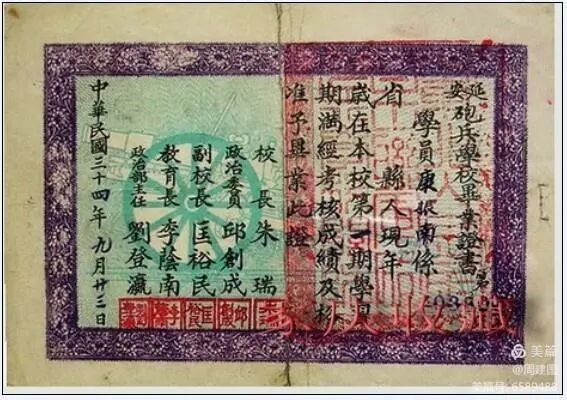 延安砲兵學校畢業證書
學員康振南係
省 縣人現年
歲在本校第一期學習
期滿經考核成績及格
准予畢業此證
校長朱瑞
政治委員邱創成
副校長匡裕民
教育長李蔭南
政治部主任劉登瀛
中華民國三十四年九月廿三日
美篇
@周建國
美篇号:6589488